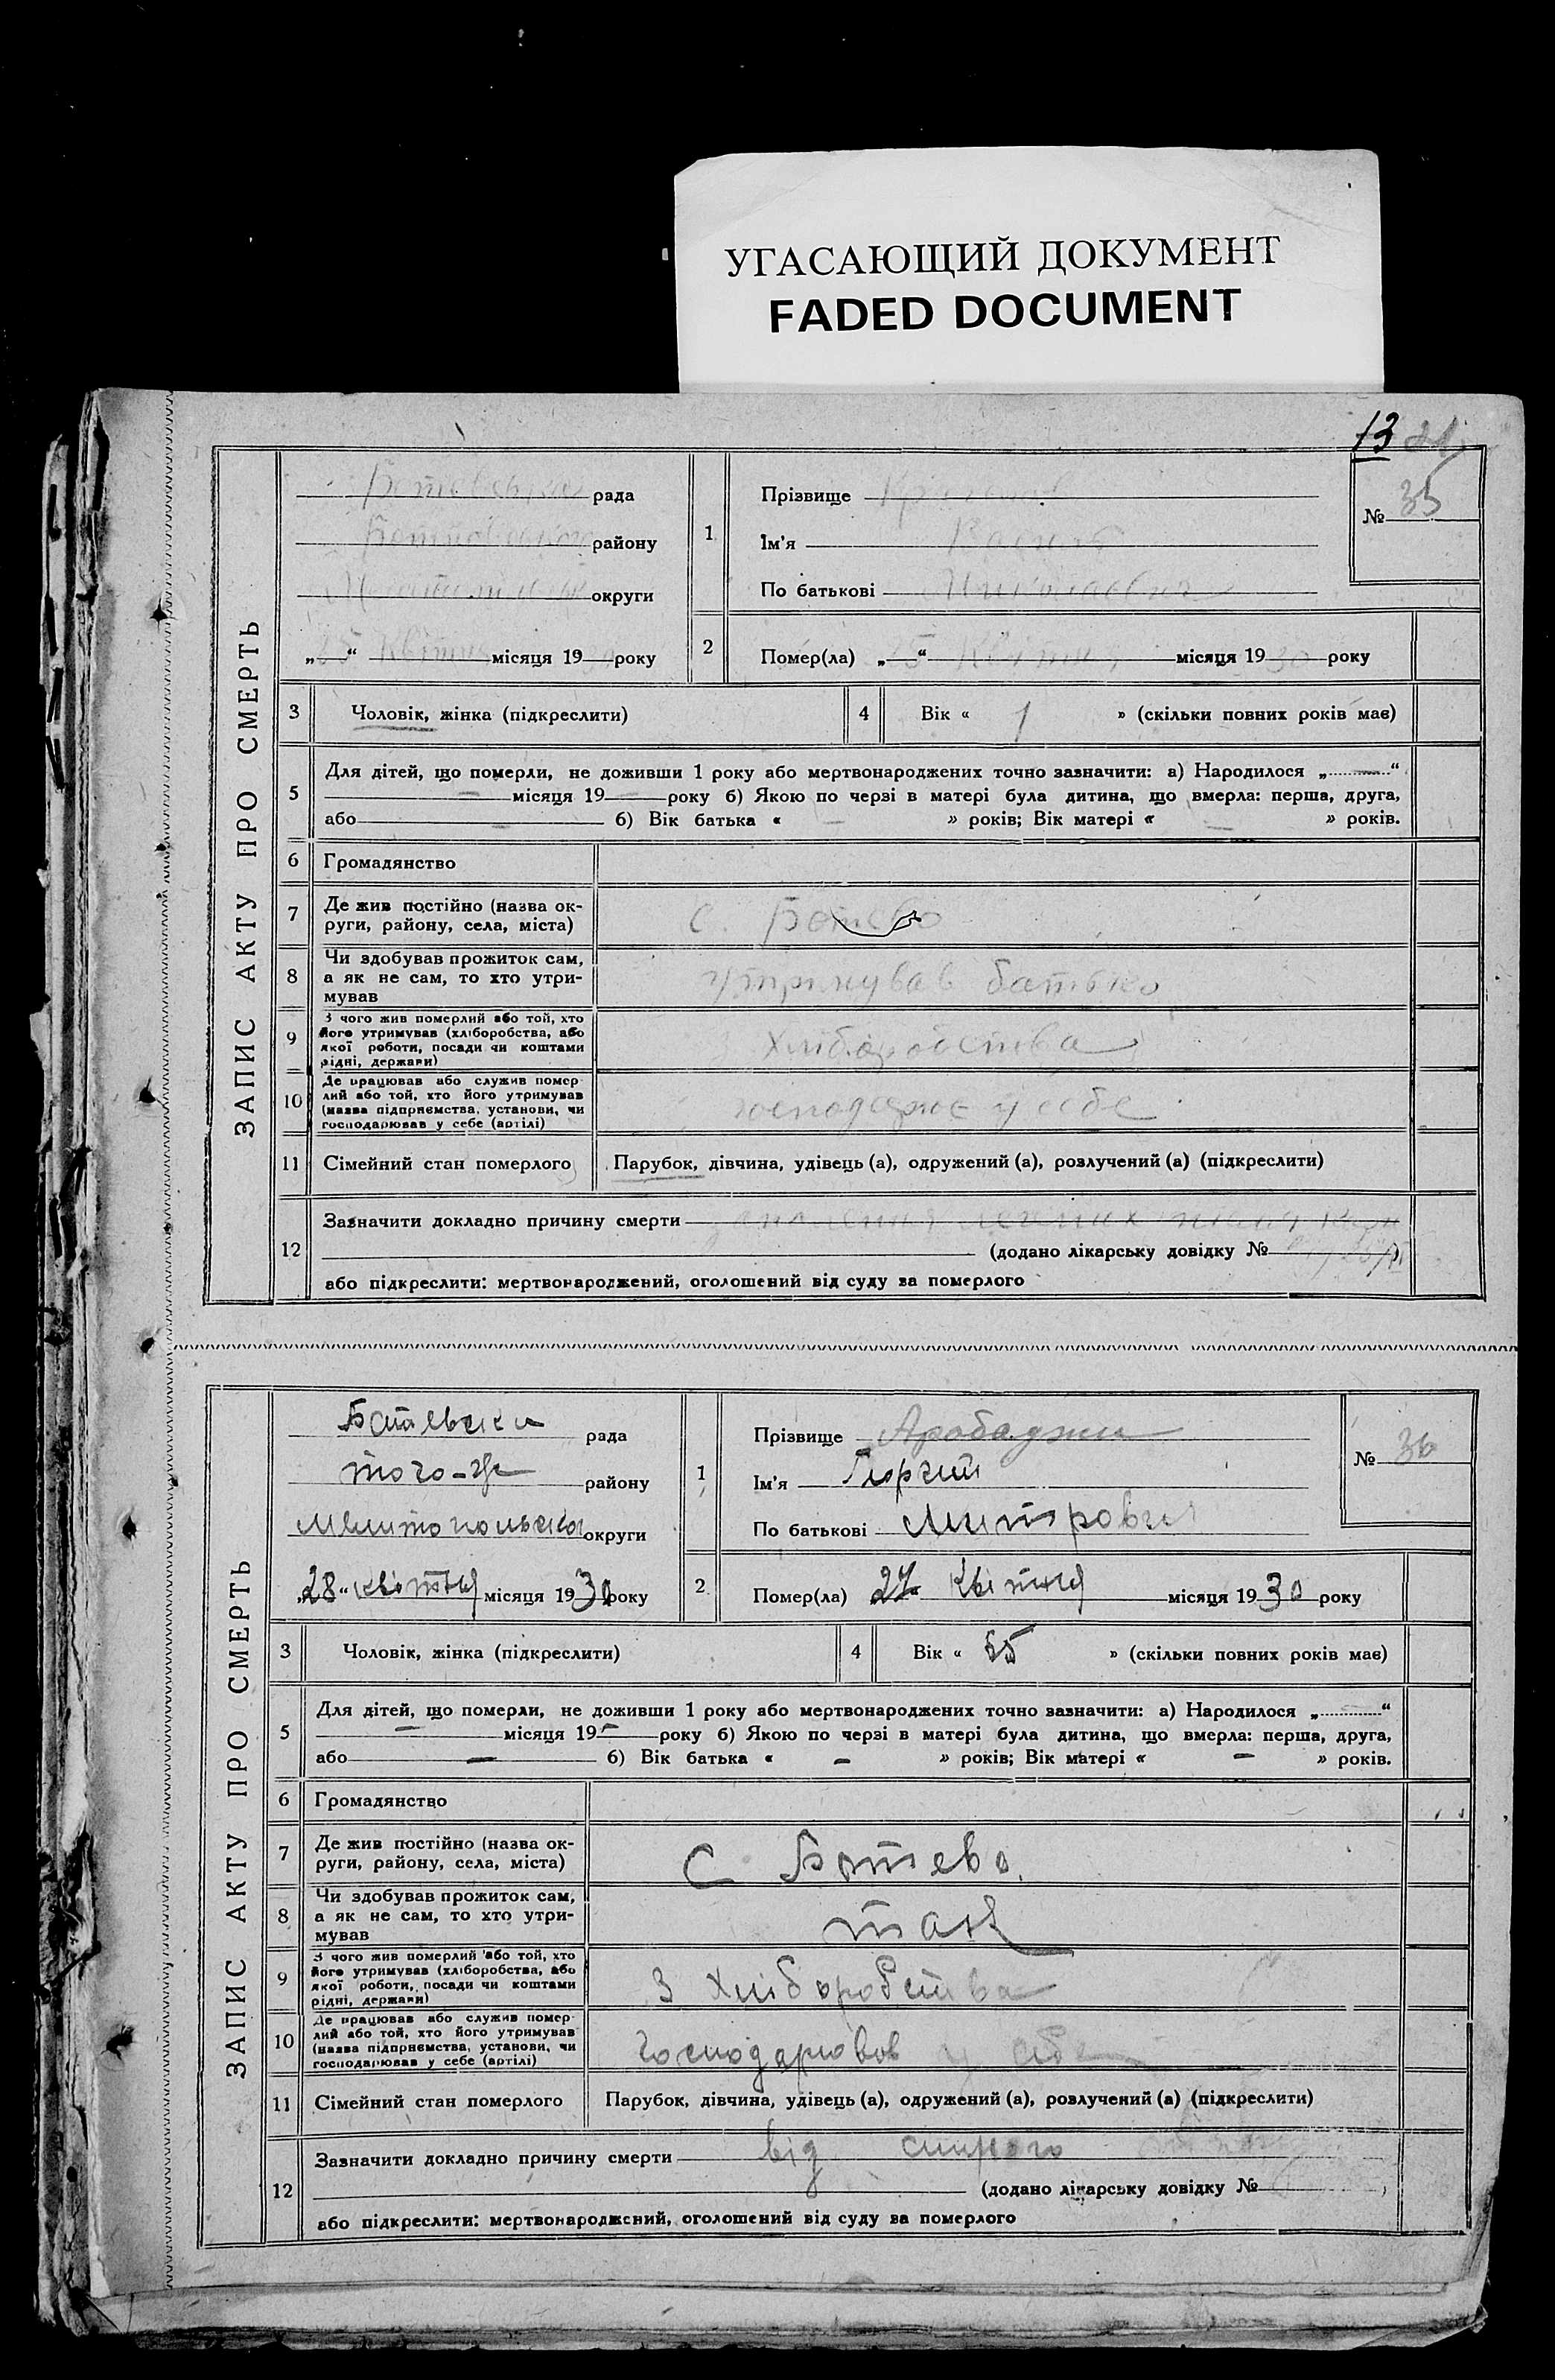 УГАСАЮЩИЙ ДОКУМЕНТ
FADED DOCUMENT
13
ЗАПИС АКТУ ПРО СМЕРТЬ
рада
району
округи
„ “ Квітня місяця 19 року
1
Прізвище
Ім'я Василь
По батькові Миколаевич
№ 35
2
Помер(ла) „25“ Квітня місяця 1930 року
3 Чоловік, жінка (підкреслити)
4 Вік « 1 » (скільки повних років має)
5
Для дітей, що померли, не доживши 1 року або мертвонароджених точно зазначити: а) Народилося „ “
місяця 19 року б) Якою по черзі в матері була дитина, що вмерла: перша, друга,
або б) Вік батька « – » років; Вік матері « – » років.
6 Громадянство
7 Де жив постійно (назва ок-
руги, району, села, міста)
с. Ботево
8 Чи здобував прожиток сам,
а як не сам, то хто утри-
мував
утримував батько
9 З чого жив померлий або той, хто
його утримував (хліборобства, або
якої роботи, посади чи коштами
рідні, держави)
хліборобства
10 Де працював або служив помер-
лий або той, хто його утримував
(назва підприємства, установи, чи
господарював у себе (артілі)
господарює у себе
11 Сімейний стан померлого
Парубок, дівчина, удівець (а), одружений (а), розлучений (а) (підкреслити)
12
Зазначити докладно причину смерти
(додано лікарську довідку №
або підкреслити: мертвонароджений, оголошений від суду за померлого
ЗАПИС АКТУ ПРО СМЕРТЬ
рада
того-ж району
округи
„28“ квітня місяця 1930 року
1
Прізвище Арабаджи
Ім'я Георгий
По батькові
№ 36
2
Помер(ла) 27 Квітня місяця 1930 року
3 Чоловік, жінка (підкреслити)
4 Вік « 65 » (скільки повних років має)
5
Для дітей, що померли, не доживши 1 року або мертвонароджених точно зазначити: а) Народилося „ “
– місяця 19 – року б) Якою по черзі в матері була дитина, що вмерла: перша, друга,
або – б) Вік батька « – » років; Вік матері « – » років.
6 Громадянство
7 Де жив постійно (назва ок-
руги, району, села, міста)
С Ботево.
8 Чи здобував прожиток сам,
а як не сам, то хто утри-
мував
так
9 З чого жив померлий або той, хто
його утримував (хліборобства, або
якої роботи, посади чи коштами
рідні, держави)
З хліборобства
10 Де працював або служив помер-
лий або той, хто його утримував
(назва підприємства, установи, чи
господарював у себе (артілі)
Господарював у себе
11 Сімейний стан померлого
Парубок, дівчина, удівець (а), одружений (а), розлучений (а) (підкреслити)
12
Зазначити докладно причину смерти від
(додано лікарську довідку №
або підкреслити: мертвонароджений, оголошений від суду за померлого